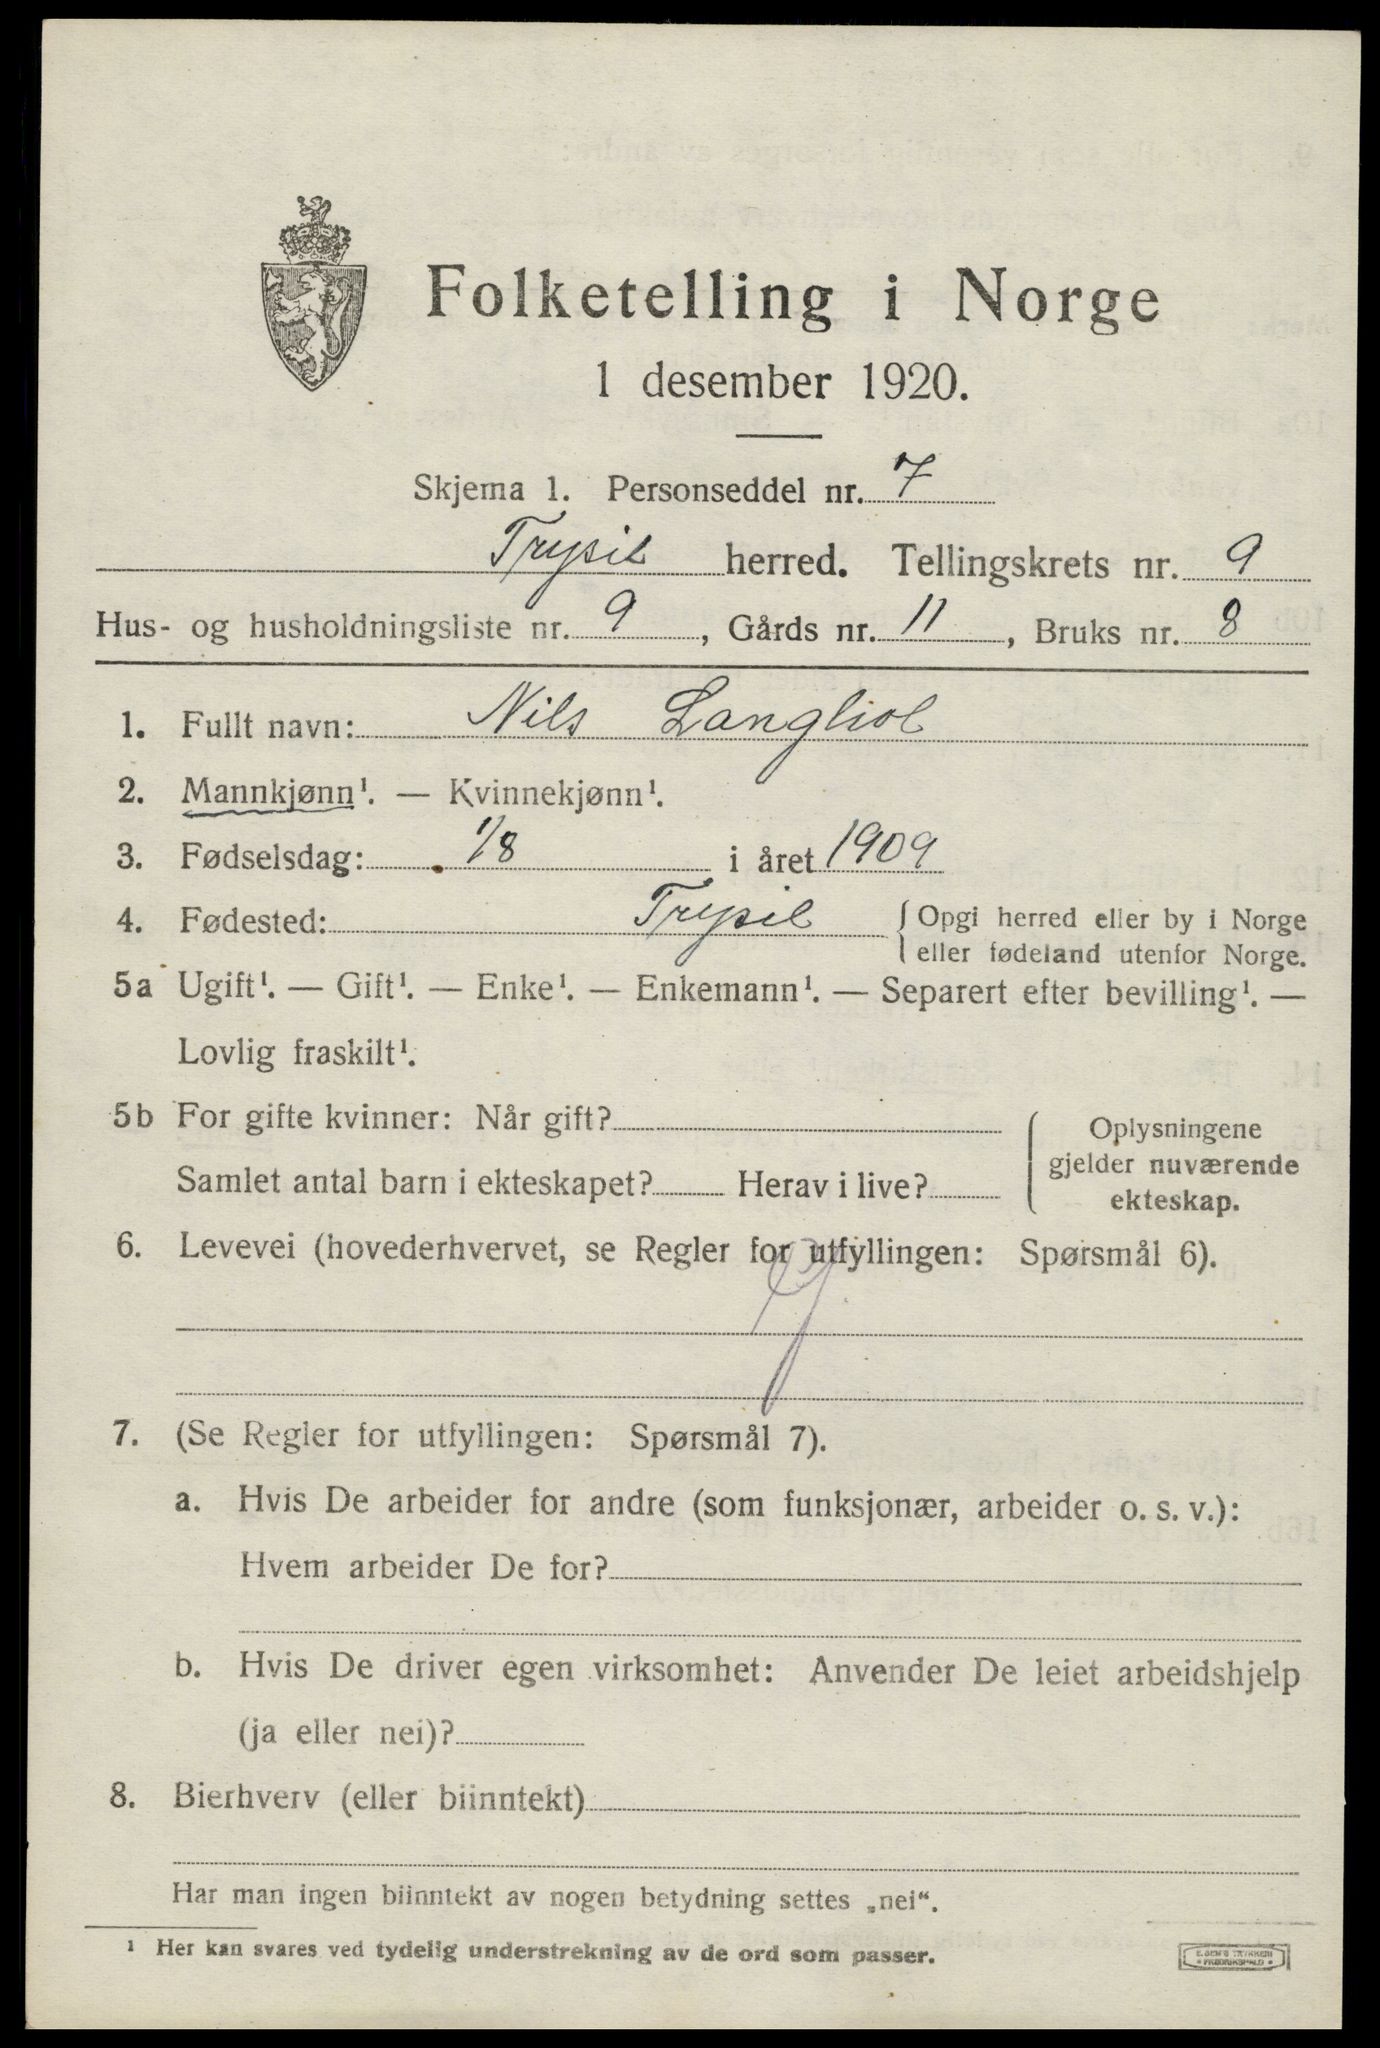 Folketelling i Norge
1 desember 1920.
Skjema 1. Personseddel nr. 7
Trysil herred. Tellingskrets nr. 9
Hus- og husholdningsliste nr. 9, Gårds nr. 11, Bruks nr. 8
1. Fullt navn: Nils Langliol
2. Mannkjønn¹. — Kvinnekjønn¹.
3. Fødselsdag: 1/8 i året 1909
4. Fødested: Trysil { Opgi herred eller by i Norge
eller fødeland utenfor Norge.
5a Ugift¹. — Gift¹. — Enke¹. — Enkemann¹. — Separert efter bevilling¹. —
Lovlig fraskilt¹.
5b For gifte kvinner: Når gift?
Samlet antal barn i ekteskapet? Herav i live?
{ Oplysningene
gjelder nuværende
ekteskap.
6. Levevei (hovederhvervet, se Regler for utfyllingen: Spørsmål 6).
7. (Se Regler for utfyllingen: Spørsmål 7).
a. Hvis De arbeider for andre (som funksjonær, arbeider o. s. v.):
Hvem arbeider De for?
b. Hvis De driver egen virksomhet: Anvender De leiet arbeidshjelp
(ja eller nei)?
8. Bierhverv (eller biinntekt)
Har man ingen biinntekt av nogen betydning settes „nei“.
¹ Her kan svares ved tydelig understrekning av de ord som passer.